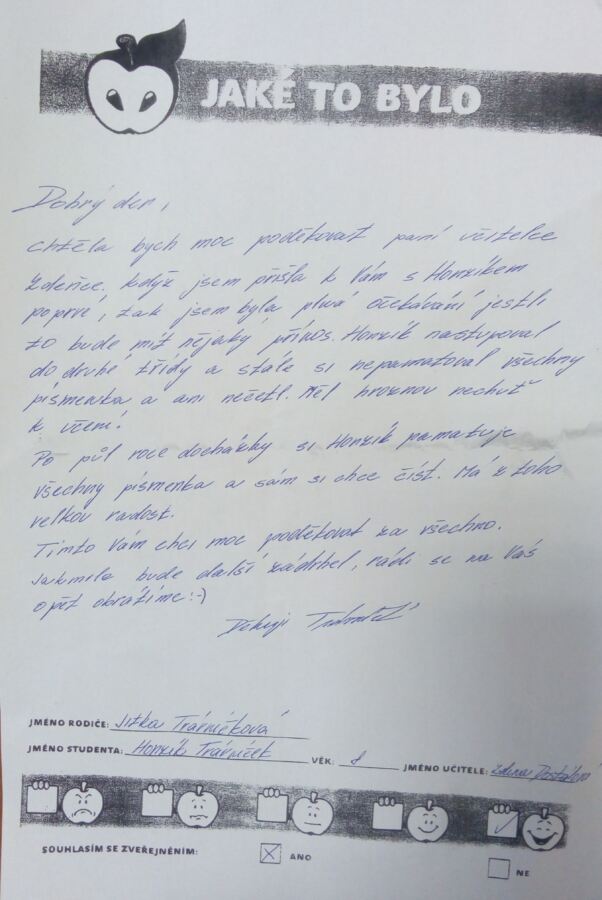 JAKÉ TO BYLO
Dobrý den,
chtěla bych moc poděkovat paní učitelce
Zdeňce. Když jsem přišla k Vám s Honzíkem
poprvé, tak jsem byla plná očekávání jestli
to bude mít nějaký přínos. Honzík nastupoval
do druhé třídy a stále si nepamatoval všechny
písmenka a ani nečetl. Měl hroznou nechuť
k učení!
Po půl roce docházky si Honzík pamatuje
všechny písmenka a sám si chce číst. Má z toho
velkou radost.
Tímto Vám chci moc poděkovat za všechno.
Jakmile bude další zádrhel, rádi se na Vás
opět obrátíme :-)
Děkuji
JMÉNO RODIČE: Jitka Trávníčková
JMÉNO STUDENTA: Honzík Trávníček VĚK: 8 JMÉNO UČITELE: Zdena Dostálová
SOUHLASÍM SE ZVEŘEJNĚNÍM: ANO
NE